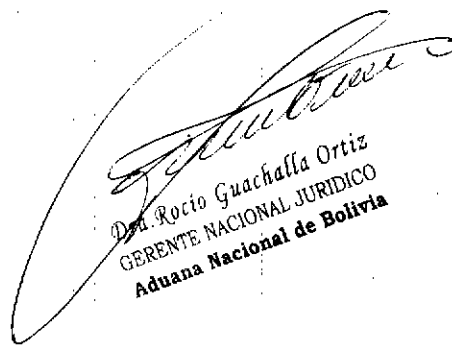 Dra. Rocio Guachalla Ortiz
GERENTE NACIONAL JURIDICO
Aduana Nacional de Bolivia